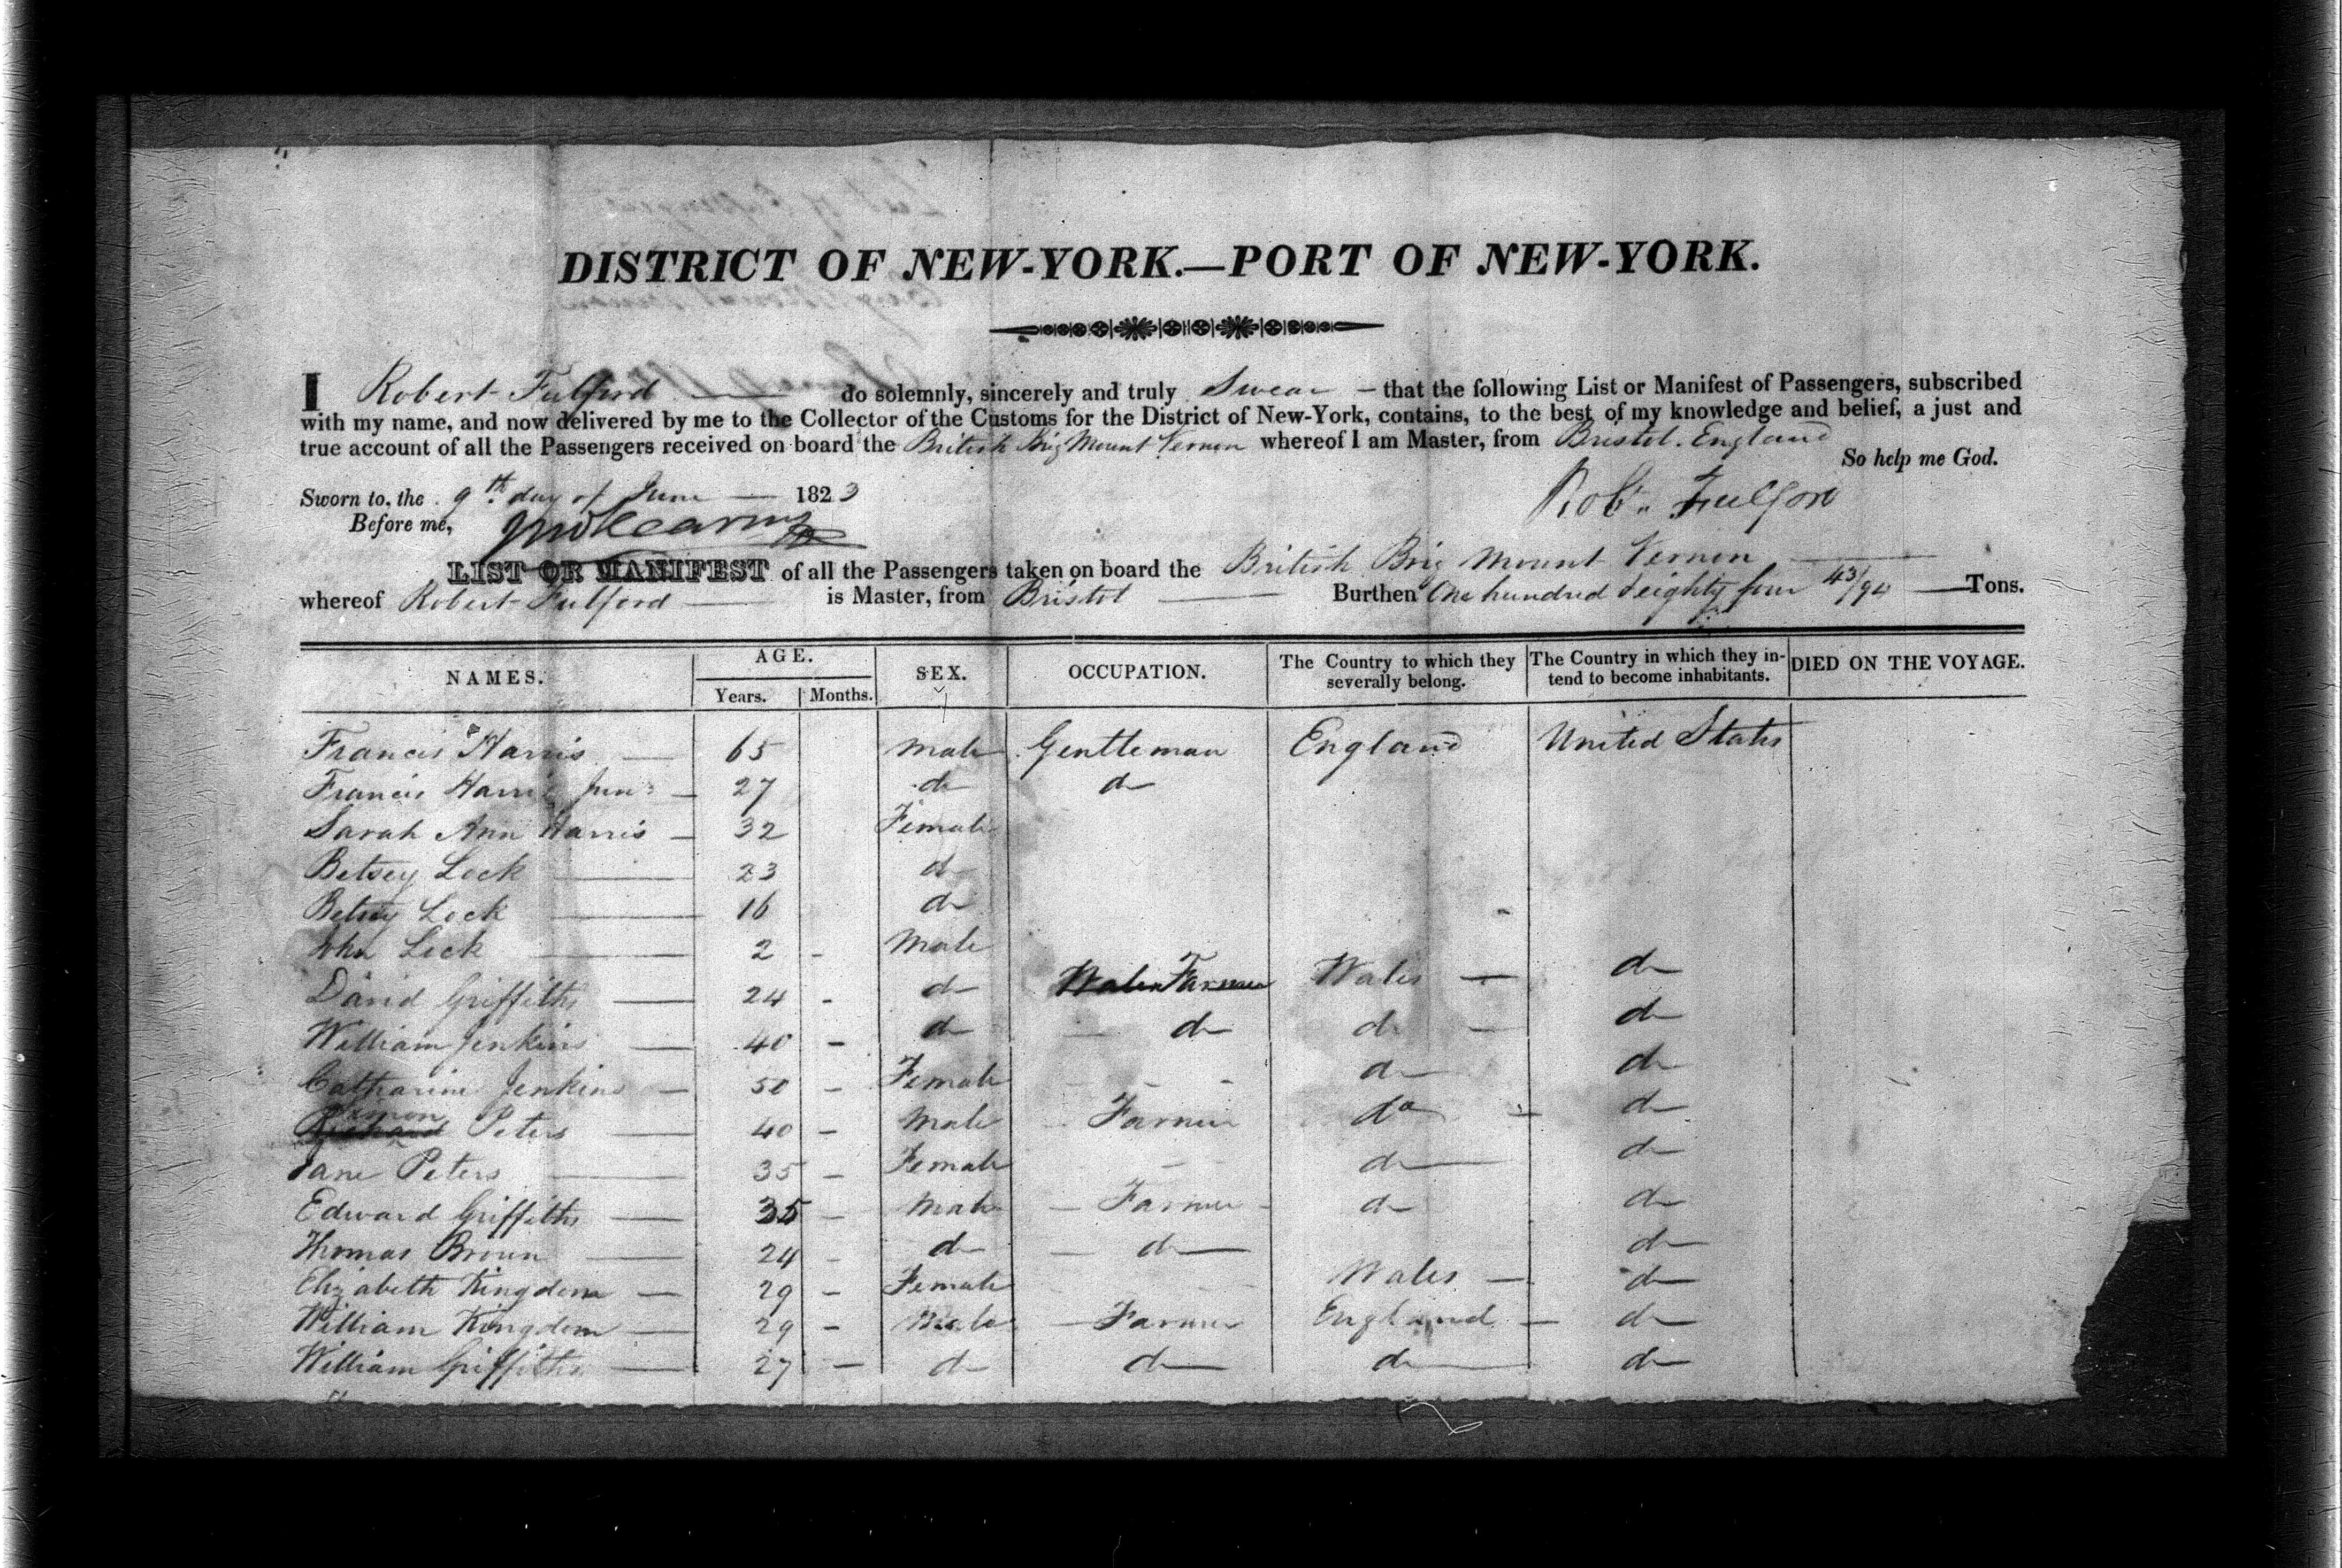 DISTRICT OF NEW-YORK.—PORT OF NEW-YORK.
I Robert Fulford do solemnly, sincerely and truly Swear – that the following List or Manifest of Passengers, subscribed
with my name, and now delivered by me to the Collector of the Customs for the District of New-York, contains, to the best of my knowledge and belief, a just and
true account of all the Passengers received on board the British Brig Mount Vernon whereof I am Master, from Bristol. England
So help me God.
Sworn to, the 9th day of June 1823
Robt. Fulford
Before me,
LIST OR MANIFEST of all the Passengers taken on board the British Brig Mount Vernon
whereof Robert Fulford is Master, from Bristol Burthen One hundred & eighty four 43/94 Tons.
NAMES. AGE. SEX. OCCUPATION. The Country to which they severally belong. The Country in which they intend to become inhabitants. DIED ON THE VOYAGE.
Years. Months.
Francis Harris 65 Male Gentleman England United States
Francis Harris Junr 27 do do
Sarah Ann Harris 32 Female
Betsey Lock 23 do
Betsey Lock 16 do
John Lock 2 - Male
David Griffiths 24 - do Wales Farmer Wales do
William Jenkins 40 - do do do do
Catharine Jenkins 50 - Female do do
Richard Peters 40 - Male Farmer do do
Jane Peters 35 - Female do do
Edward Griffiths 35 - Male Farmer do do
Thomas Brown 24 - do do do
Elizabeth Kingdom 29 - Female Wales do
William Kingdom 29 - Male Farmer England do
William Griffiths 27 - do do do do